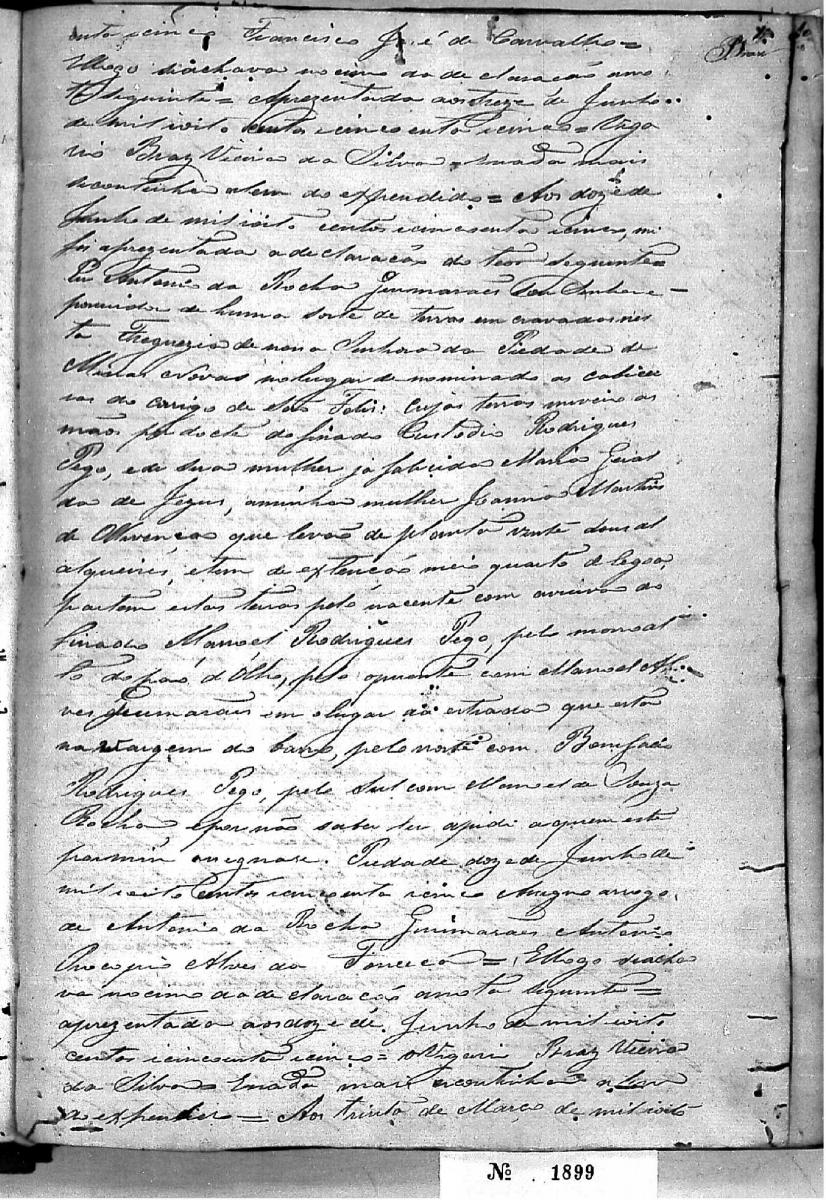 enta e cinco Francisco José de Carvalho =
E logo siachava no cimo da de claracáo ano
ta seguinte = Aprezentada aos treze de Junho
de mil oito centos e cincoenta e cinco = Viga
rio Braz Vieira da Silva = Enada mais
se continha alem do expendido = Aos doze de
Junho de mil oito centos e cincoenta e cinco, mi
foi aprezentada a de claracáo do teor seguinte =
Eu Antonio da Rocha Guimaraes sou Senhor e
possuidor de huma sorte de terras em cravadas nes
ta Freguezia de nossa Senhora da Piedade de
Minas Novas no lugar de nominado as cabicei
ras do corigo de São Felis: cujas terras
mãos por dote do finado Custodio Rodrigues
Pego, e de sua mulher ja falicida Maria Geral
da de Jezus, aminha mulher Joanna Martins
de que levão de planta vinte
alqueires, e tem de extencáo meio quarto de legoa,
partem estas terras pelo nacente com
finado Manoel Rodrigues Pego, pelo
to do páo d'Olho, pelo opuente com Manoel Al
ves Guimarães em o lugar da estrada que está
na vargem do barro, pelo norte com Bonifacio
Rodrigues Pego, pelo Sul com Manoel de Souza
Rocha e por não saber ler a quem este
por mim Piedade doze de Junho de
mil oito centos e cincoenta e cinco arogo
de Antonio da Rocha Guimarães Antonio
Procopio Alves da Fonceca = E logo siacha
va no cimo da de claracáo anota seguinte =
aprezentada aos doze de Junho de mil oito
centos e cincoenta e cinco = o Vigario Braz Vieira
da Silva = Enada mais se continha alem
do expendido = Aos trinta de Março de mil oito
Nº 1899